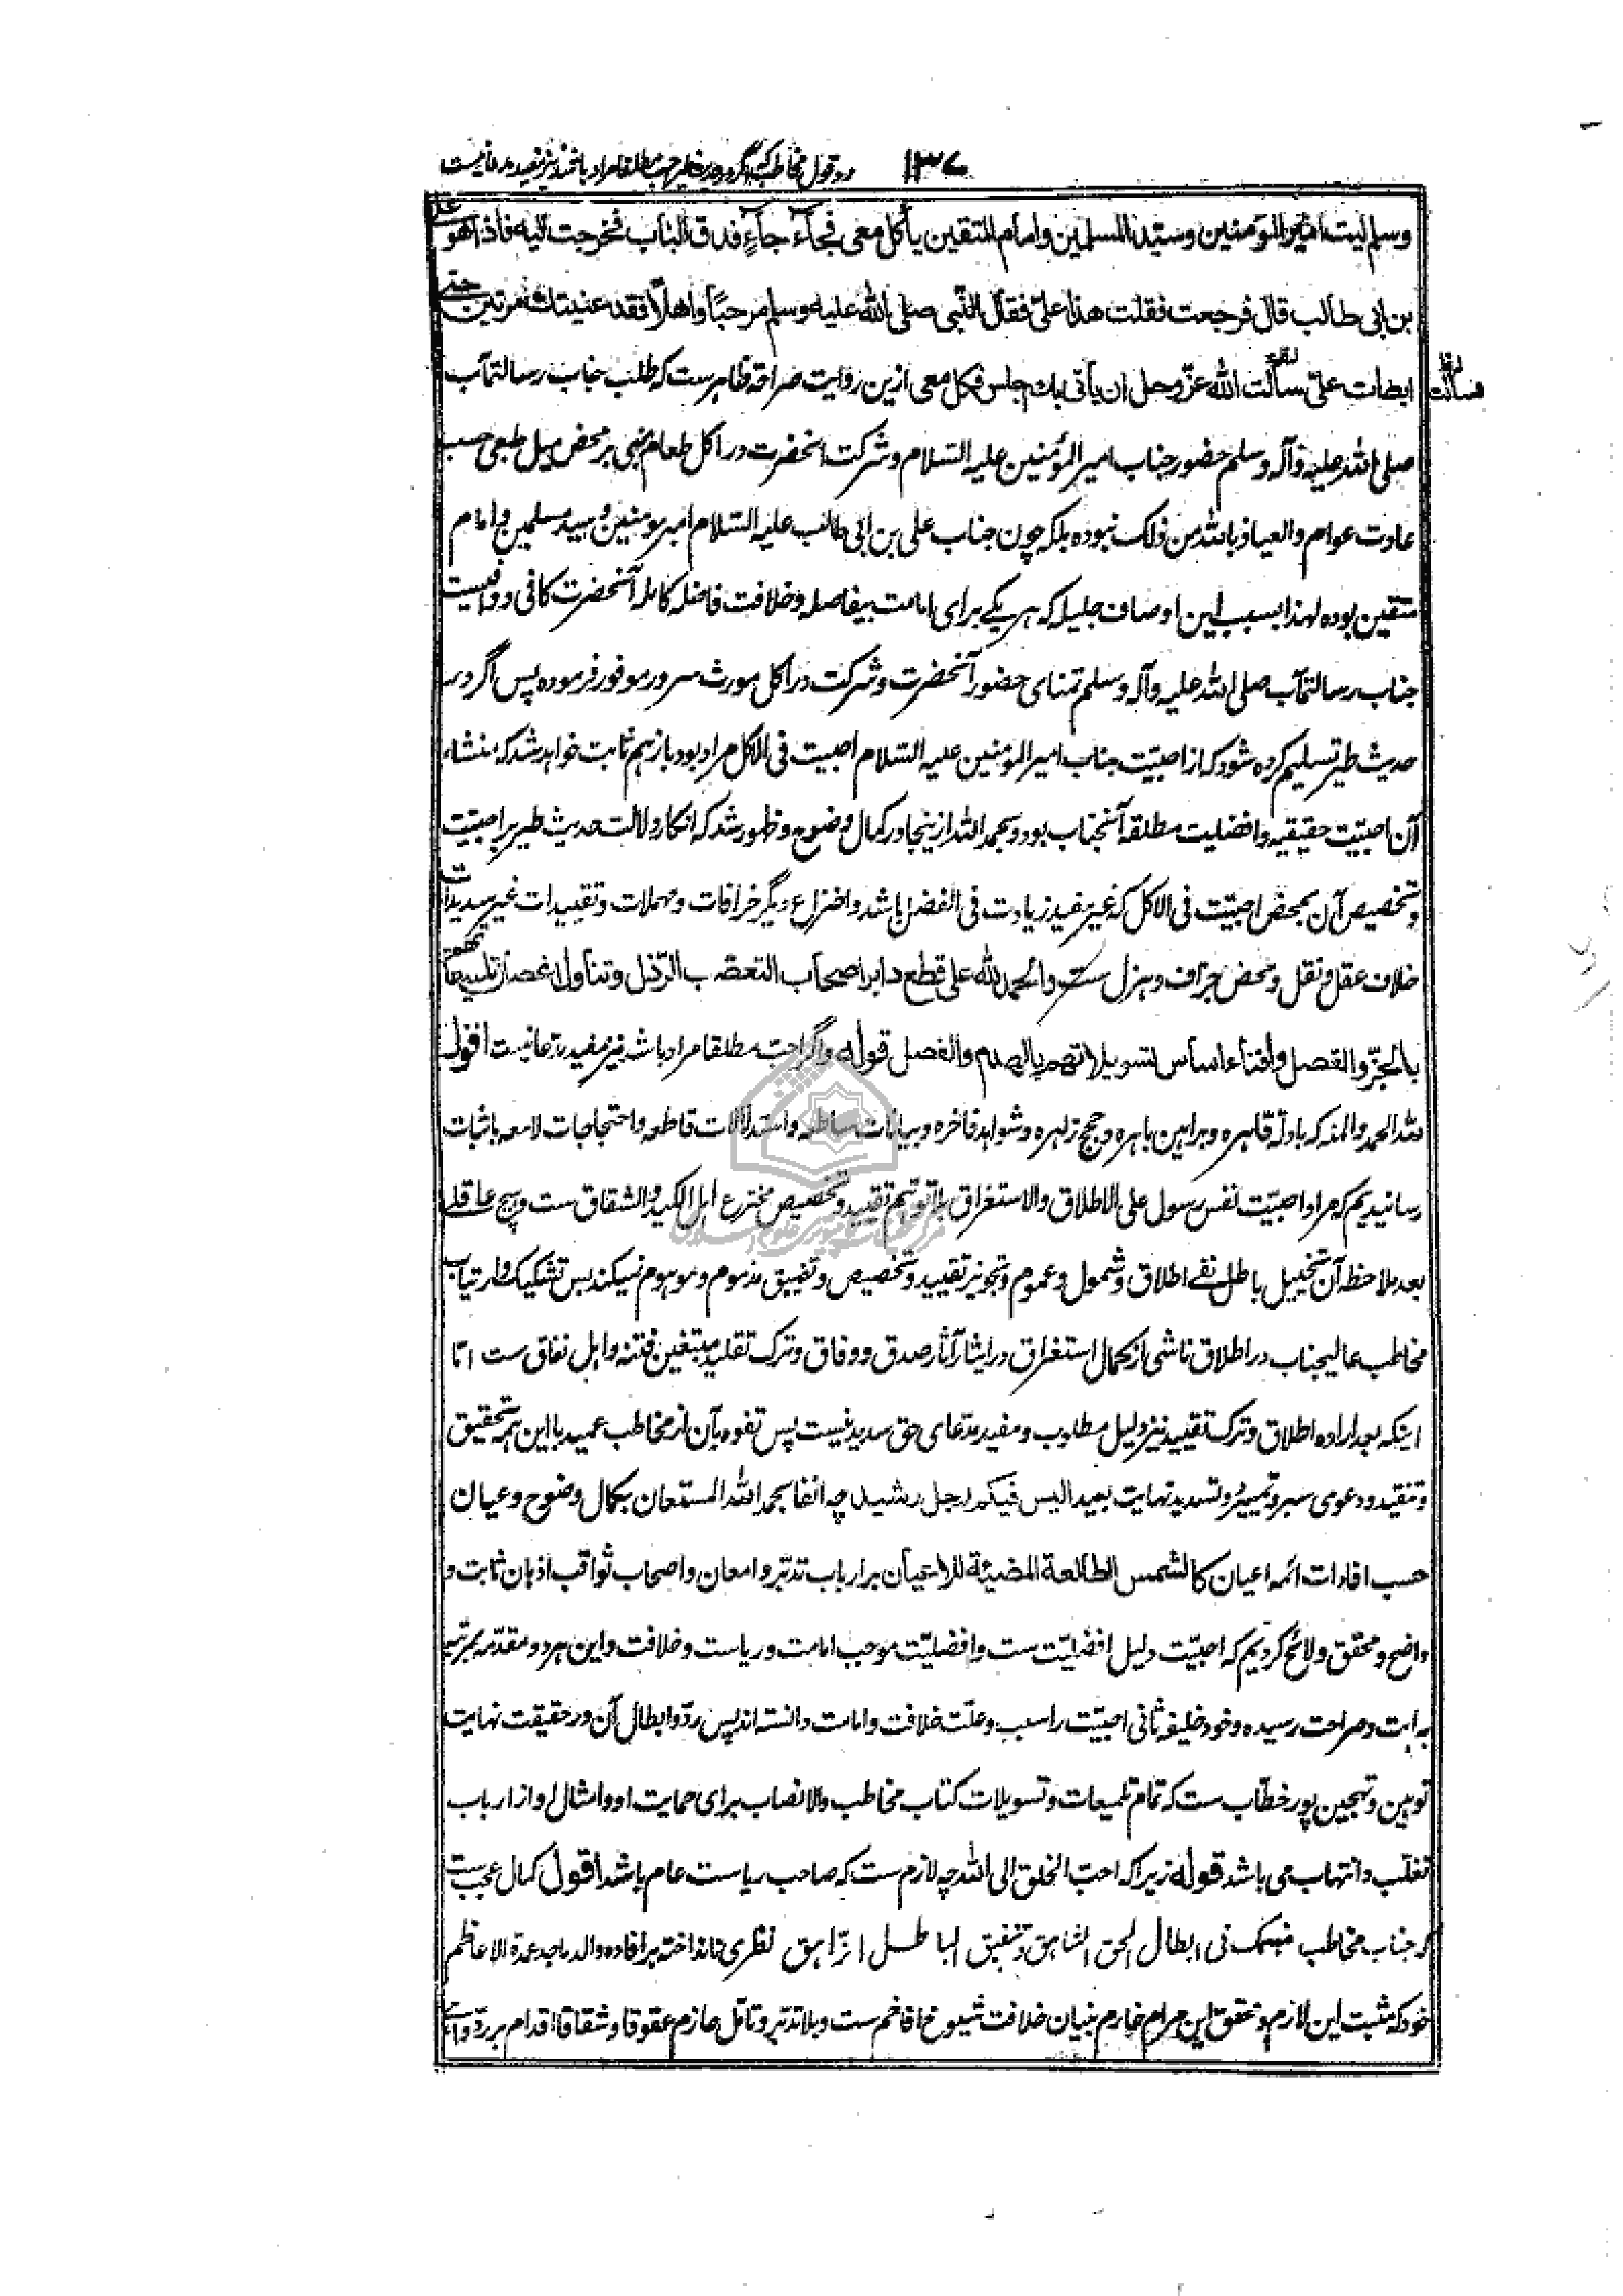 رد قول مخاطب که اگر در حدیث طیر احب مطلقا مراد باشد نیز مفید مدعا نیست
۱۱۳۷
وسلم لیت امیر المؤمنین وسید المسلمین وامام المتقین یأکل معی فجآء جآءٍ فدق الباب فخرجت الیه فاذا هو علی
بن ابی طالب قال فرجعت فقلت هذا علیّ فقال النبی صلی الله علیه وسلم مرحباً واهلاً فقد عنیتك مرتین حتی
ابطات علیّ سألت الله عزّ وجل ان یأتی بك اجلس فکل معی ازین روایت صراحة ظاهرست که طلب جناب رسالتمآب
صلی الله علیه وآله وسلم حضور جناب امیر المؤمنین علیه السلام وشرکت آنحضرت در اکل طعام مبنی بر محض میل طبعی حسب
عادت عوام والعیاذ بالله من ذلک نبوده بلکه چون جناب علی بن ابی طالب علیه السلام امیر مومنین وسید مسلمین وامام
متقین بوده لهذا بسبب این اوصاف جلیله که هر یکی برای امامت بیفاصله وخلافت فاضله کامله آنحضرت کافی ووافیست
جناب رسالتمآب صلی الله علیه وآله وسلم تمنای حضور آنحضرت وشرکت در اکل مورث سرور موفور فرموده پس اگر در
حدیث طیر تسلیم کرده شود که از احبیّت جناب امیر المؤمنین علیه السلام احبیت فی الاکل مراد بود باز هم ثابت خواهد شد که منشاء
آن احبیّت حقیقیه وافضلیت مطلقه آنجناب بود وبحمد الله ازینجا در کمال وضوح وظهور شد که انکار دلالت حدیث طیر بر احبیّت
وتخصیص آن بمحض احبیّت فی الاکل که غیر مفید زیادت فی الفضل باشد واختراع دیگر خرافات ومهملات وتقییدات غیر سدیدات
خلاف عقل ونقل ومحض جزاف وهزل ست والحمد لله علی قطع دابر اصحاب التعصب الرذل وتناول اغصان تلمیعاتهم
بالجزّ والفصل وافناء اساس تسویلاتهم بالهدم والفصل قوله واگر احبّ مطلقا مراد باشد نیز مفید مدعا نیست اقول
ولله الحمد والمنه که بادلّه قاهره وبراهین باهره وحجج زاهره وشواهد فاخره وبیانات ساطعه واستدلالات قاطعه واحتجاجات لامعه باثبات
رسانیدیم که مراد احبیّت نفس رسول علی الاطلاق والاستغراق ست وتوهّم تقیید وتخصیص مخترع اهل الکید والشقاق ست وهیچ عاقلی
بعد ملاحظه آن تخییل باطل نفی اطلاق وشمول وعموم وتجویز تقیید وتخصیص وتفییق مذموم وموهوم نمیکند پس تشکیک وارتیاب
مخاطب عالیجناب در اطلاق ناشی از کمال استغراق در ایثار آثار صدق ووفاق وترک تقلید مبتغین فتنه واهل نفاق ست امّا
اینکه بعد اراده اطلاق وترک تقیید نیز دلیل مطلوب ومفید مدعای حق سدید نیست پس تفوه بآن از مخاطب عمید با این همه تحقیق
وتنقید ودعوی سبر وتمییز وتسدید نهایت بعید الیس فیکم رجل رشید چه آنفا بحمد الله المستعان بکمال وضوح وعیان
حسب افادات ائمه اعیان کالشمس الطالعة المضیئة للاعیان بر ارباب تدبّر وامعان واصحاب ثواقب اذهان ثابت و
واضح ومحقق ولائح کردیم که احبیّت دلیل افضلیّت ست وافضلیّت موجب امامت وریاست وخلافت واین هر دو مقدّمه بمرتبه
بداهت وصراحت رسیده وخود خلیفه ثانی احبیّت را سبب وعلّت خلافت وامامت دانسته اند پس ردّ وابطال آن در حقیقت نهایت
توهین وتهجین پور خطّاب ست که تمام تلمیعات وتسویلات کتاب مخاطب والا نصاب برای حمایت او وامثال او از ارباب
تغلّب وانتهاب می باشد قوله زیرا که احبّ الخلق الی الله چه لازم ست که صاحب ریاست عام باشد اقول کمال عجب ست
که جناب مخاطب منهمک فی ابطال الحق الشاهق وتنفیق الباطل الزاهق نظری نانداخته بر افاده والد ماجد عمدة الاعاظم
خود که مثبت این لازم ومحقق این مرام خارم بنیان خلافت شیوخ افاخم ست وبلا تدبّر وتأمل حازم عقوقا وشقاقا اقدام بر ردّ